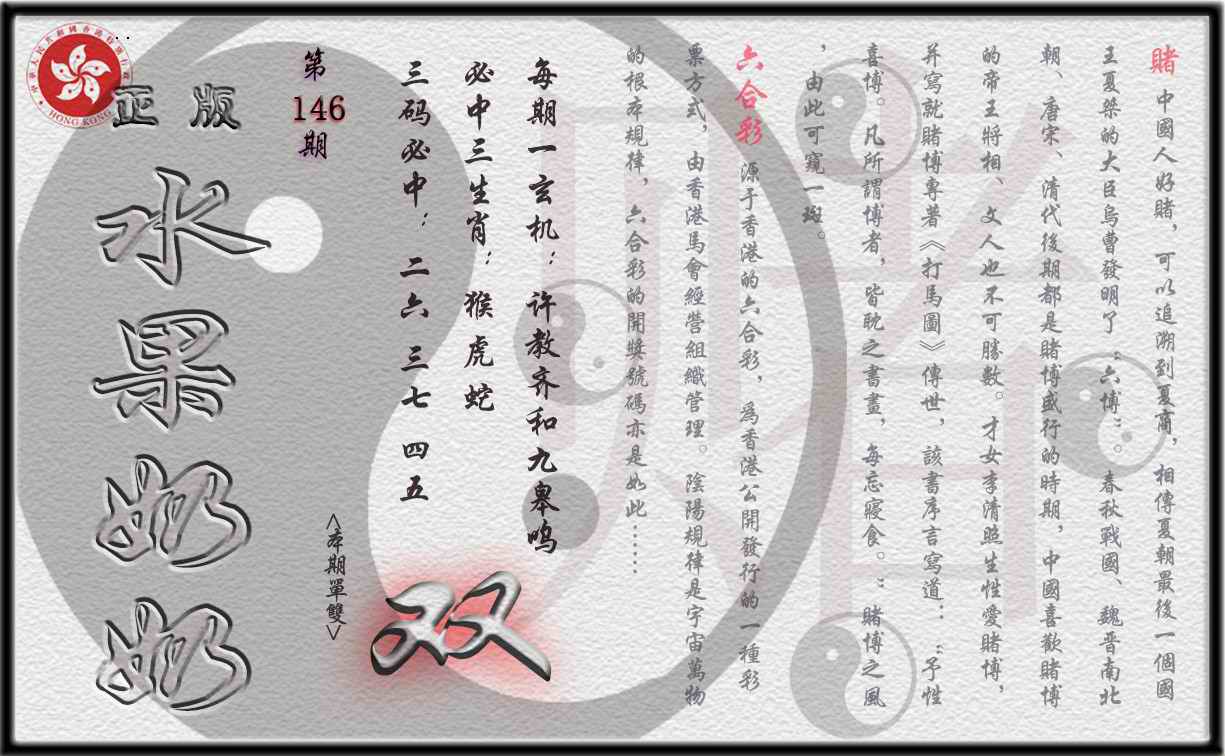 賭 中國人好賭，可以追溯到夏商，相傳夏朝最後一個國
王夏桀的大臣烏曹發明了“六博”。春秋戰國、魏晋南北
朝、唐宋、清代後期都是賭博盛行的時期，中國喜歡賭博
的帝王將相、文人也不可勝數。才女李清照生性愛賭博，
并寫就賭博專著《打馬圖》傳世，該書序言寫道：“予性
喜博。凡所謂博者，皆耽之書畫，每忘寢食。”賭博之風
，由此可窺一斑。
六合彩 源于香港的六合彩，爲香港公開發行的一種彩
票方式，由香港馬會經營組織管理。陰陽規律是宇宙萬物
的根本規律，六合彩的開獎號碼亦是如此……
每期一玄机：许教齐和九皋鸣
必中三生肖：猴虎蛇
三码必中：二六 三七 四五
双
第
146
期
<本期單雙>
正版
水果奶奶
HONG KONG